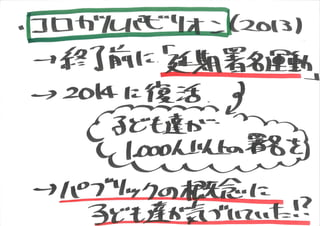 ・コロガルパビリオン(2013)
→終了前に「延期署名運動」
→2014に復活
子ども達が
1,000人以上の署名を
→パブリックの概念に
子ども達が気づいていた!?